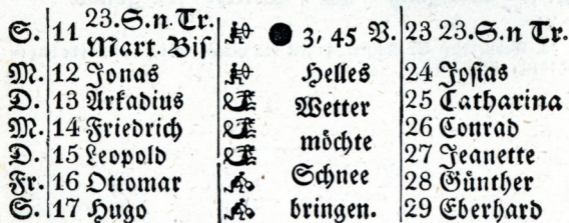 S. 11 23.S.n.Tr. Mart. Bis ● 3, 45 V. 23 23.S.n Tr.
M. 12 Jonas Helles 24 Josias
D. 13 Arkadius Wetter 25 Catharina
M. 14 Friedrich möchte 26 Conrad
D. 15 Leopold Schnee 27 Jeanette
Fr. 16 Ottomar bringen. 28 Günther
S. 17 Hugo 29 Eberhard